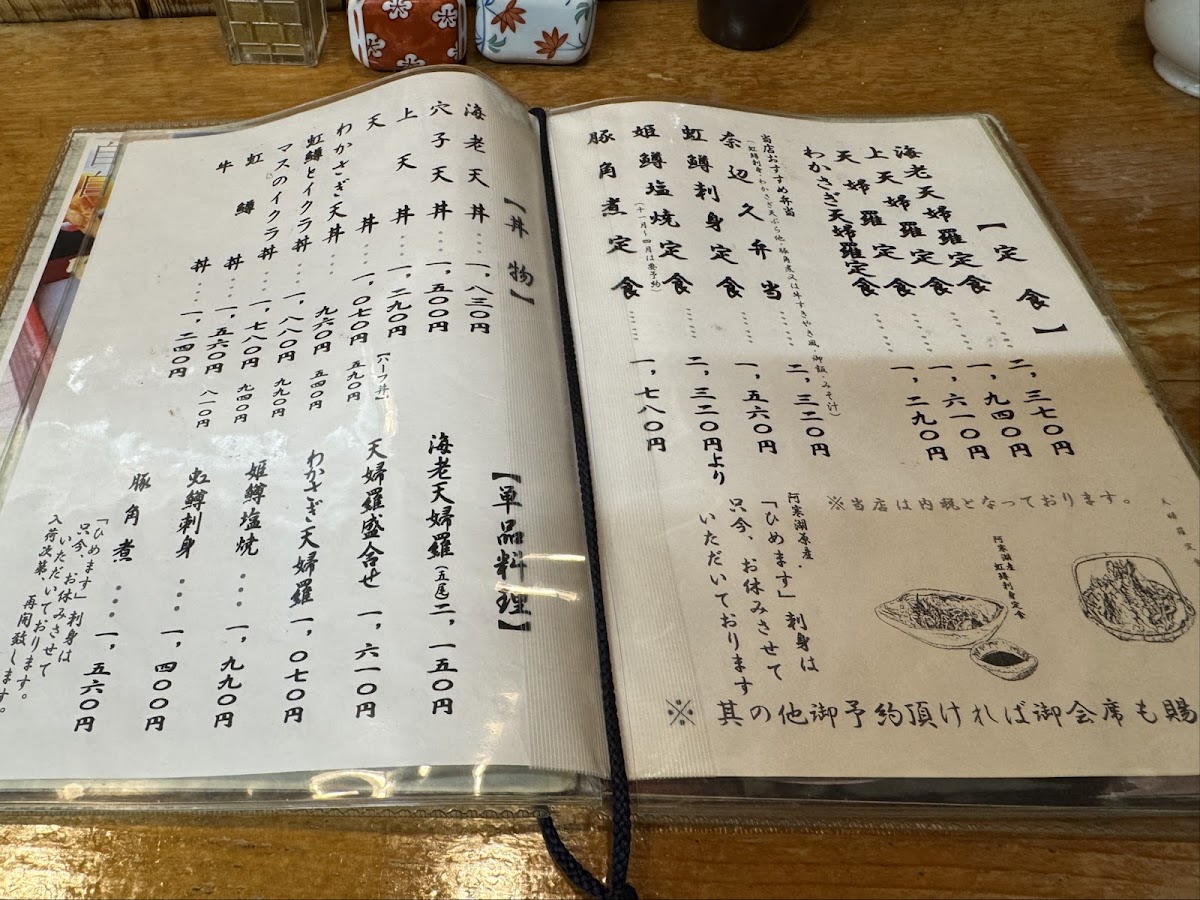 【定食】
海老天婦羅定食……二,三七〇円
上天婦羅定食……一,九四〇円
天婦羅定食……一,六一〇円
わかさぎ天婦羅定食……一,二九〇円
当店おすすめ弁当
奈辺久弁当……二,三二〇円
(虹鱒刺身・わかさぎ天ぷら他・豚角煮又は牛すきやき風・御飯・みそ汁)
虹鱒刺身定食……一,五六〇円
姫鱒塩焼定食……二,三二〇円より
(十一月〜四月は要予約)
豚角煮定食……一,七八〇円
※当店は内税となっております。
阿寒湖産
虹鱒刺身定食
阿寒湖原産・
「ひめます」刺身は
只今、お休みさせて
いただいております
※其の他御予約頂ければ御会席も賜
【丼物】
海老天丼…一,八三〇円
穴子天丼…一,五〇〇円
上天丼…一,二九〇円
天丼…一,〇七〇円
【ハーフ丼】
五九〇円
わかさぎ天丼…九六〇円 五四〇円
虹鱒とイクラ丼…一,八八〇円 九九〇円
マスのイクラ丼…一,七八〇円 九四〇円
虹鱒丼…一,五六〇円 八一〇円
牛丼…一,二四〇円
【単品料理】
海老天婦羅(五尾)二,一五〇円
天婦羅盛合せ 一,六一〇円
わかさぎ天婦羅 一,〇七〇円
姫鱒塩焼…一,九九〇円
虹鱒刺身…一,四〇〇円
豚角煮…一,五六〇円
「ひめます」刺身は
只今、お休みさせて
いただいております。
入荷次第、再開致します。